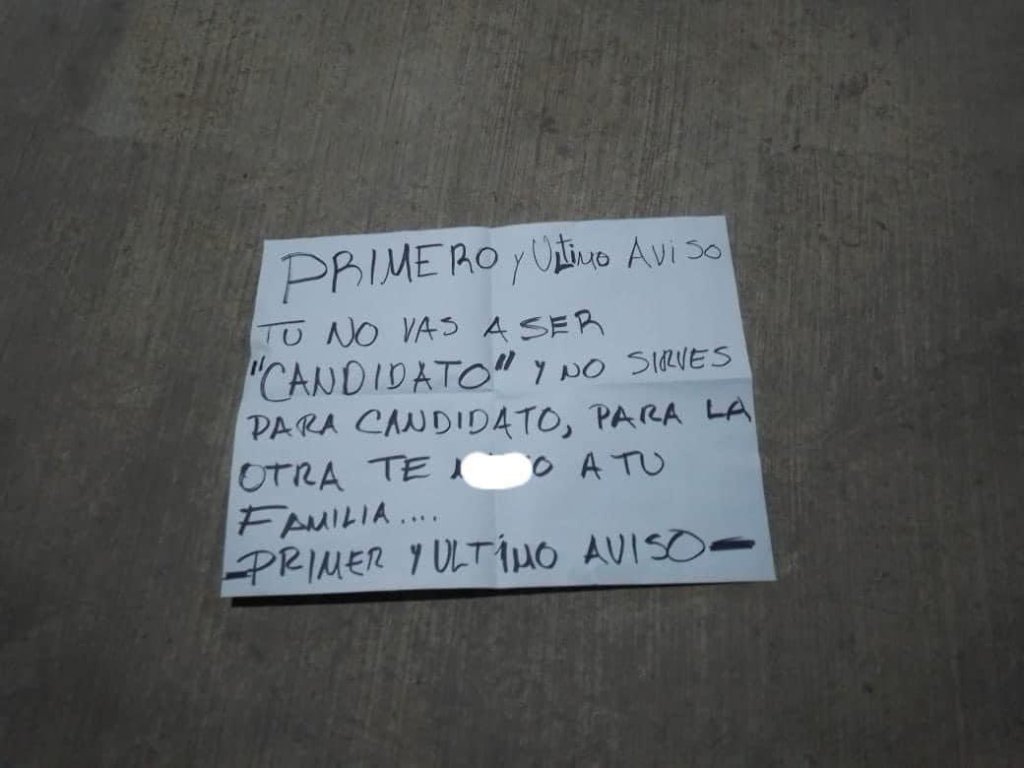 PRIMERO y Ultimo Aviso
TU NO VAS A SER
"CANDIDATO" Y NO SIRVES
PARA CANDIDATO, PARA LA
OTRA TE A TU
FAMILIA....
-PRIMER Y ULTIMO AVISO-